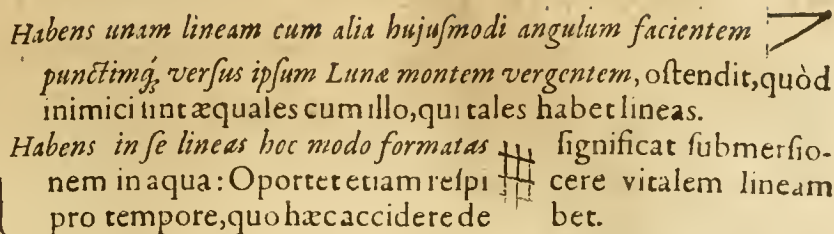 Habens unam lineam cum alia hujuſmodi angulum facientem
punctimq́, verſus ipſum Lunæ montem vergentem, oſtendit, quòd
inimici ſint æquales cum illo, qui tales habet lineas.
Habens in ſe lineas hoc modo formatas ſignificat ſubmerſio-
nem in aqua: Oportet etiam reſpi cere vitalem lineam
pro tempore, quo hæc accidere de bet.